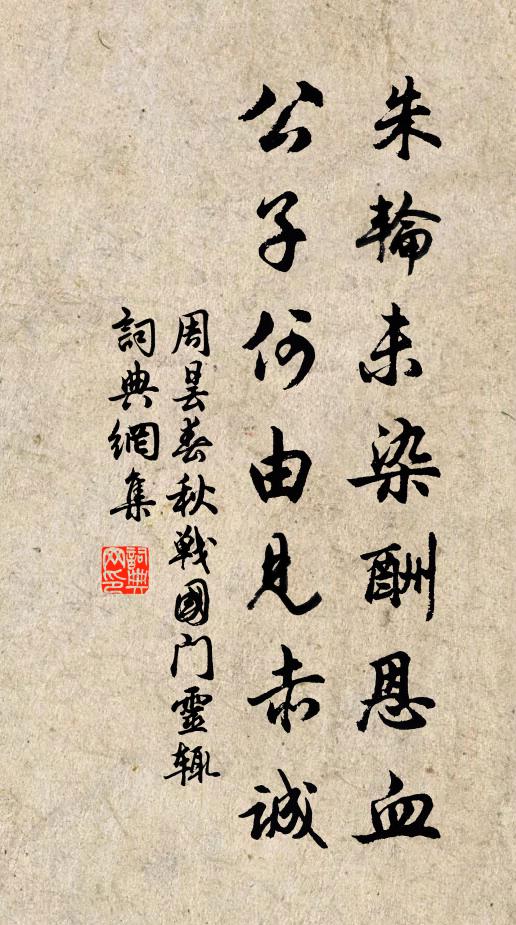 朱輪未染酬恩血
公子何由見赤誠
周曇春秋戰國門靈輒
詞典網集
詞典网印